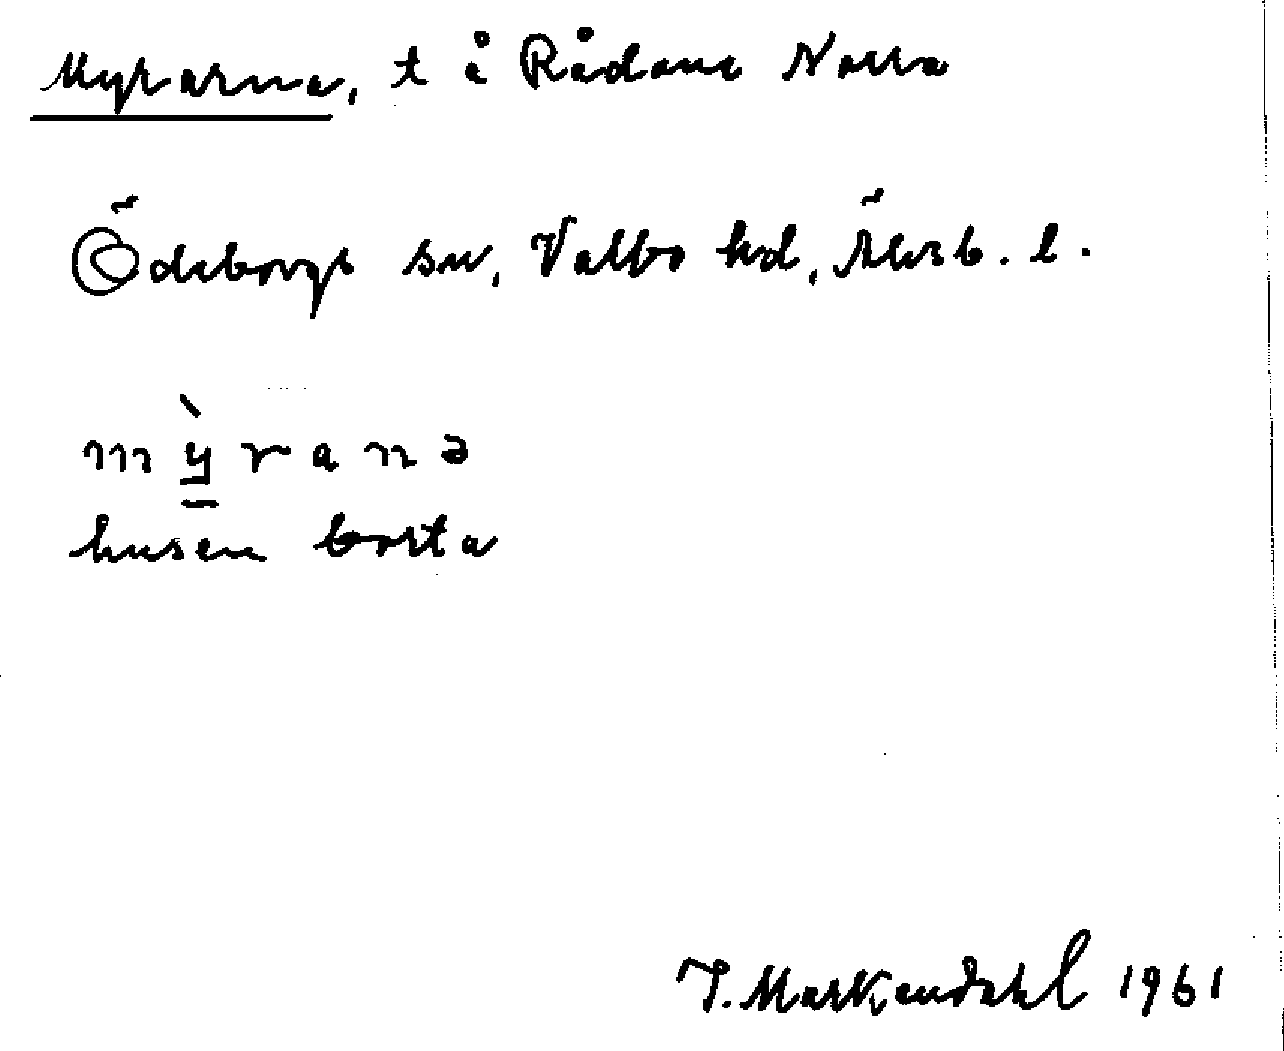 Myrarna, t å Rådane Norra
Ödeborgs sn, Valbo hd, Älvsb. l.
mỳ̱ranə
husen borta
T. Markendahl 1961